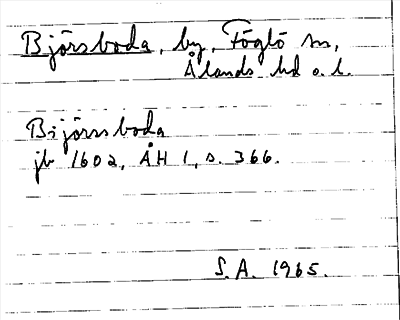 Björsboda, by, Föglö sn,
Ålands hd o. l.
Biörssboda
jb 1602, ÅH 1, s. 366.
S.A. 1965.